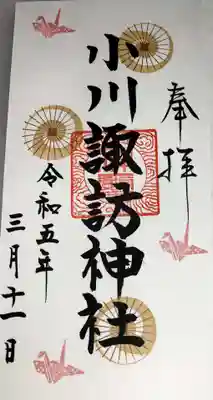 奉拝
小川諏訪神社
令和五年
三月十一日